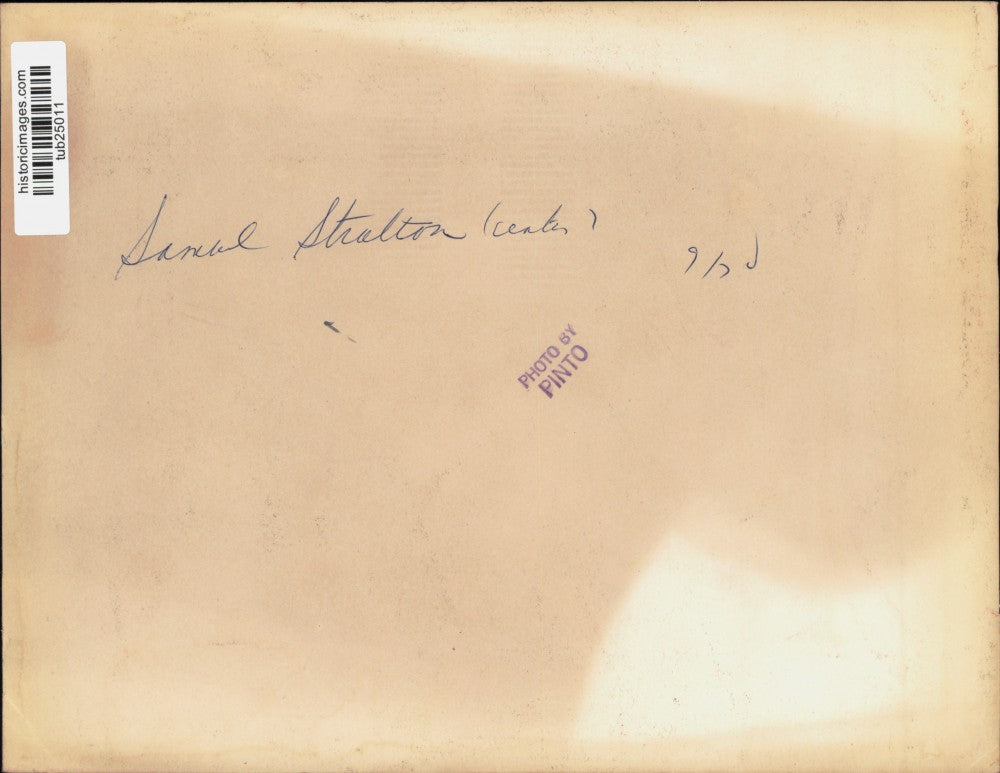 historicimages.com
tub25011
Samuel Stratton (center)
PHOTO BY
PINTO